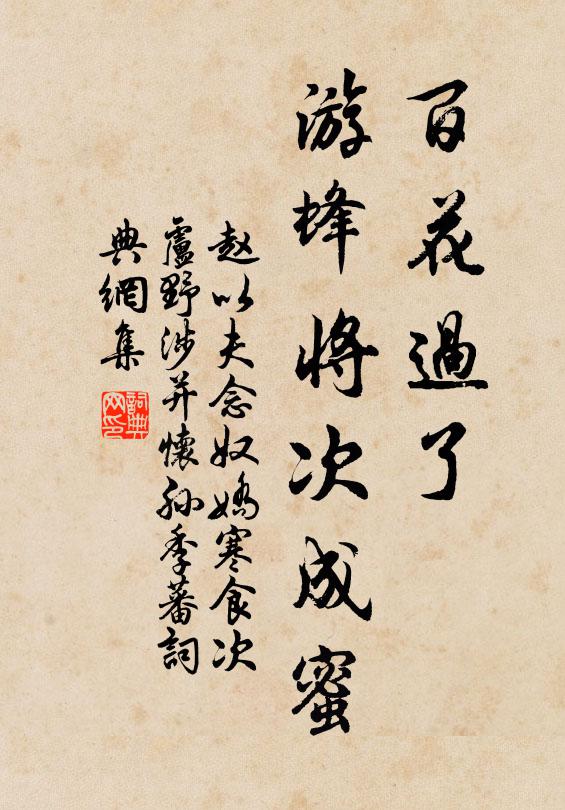 百花過了
游蜂將次成蜜
趙以夫念奴嬌寒食次
盧野涉并懷孙季蕃詞
典網集
詞典网印